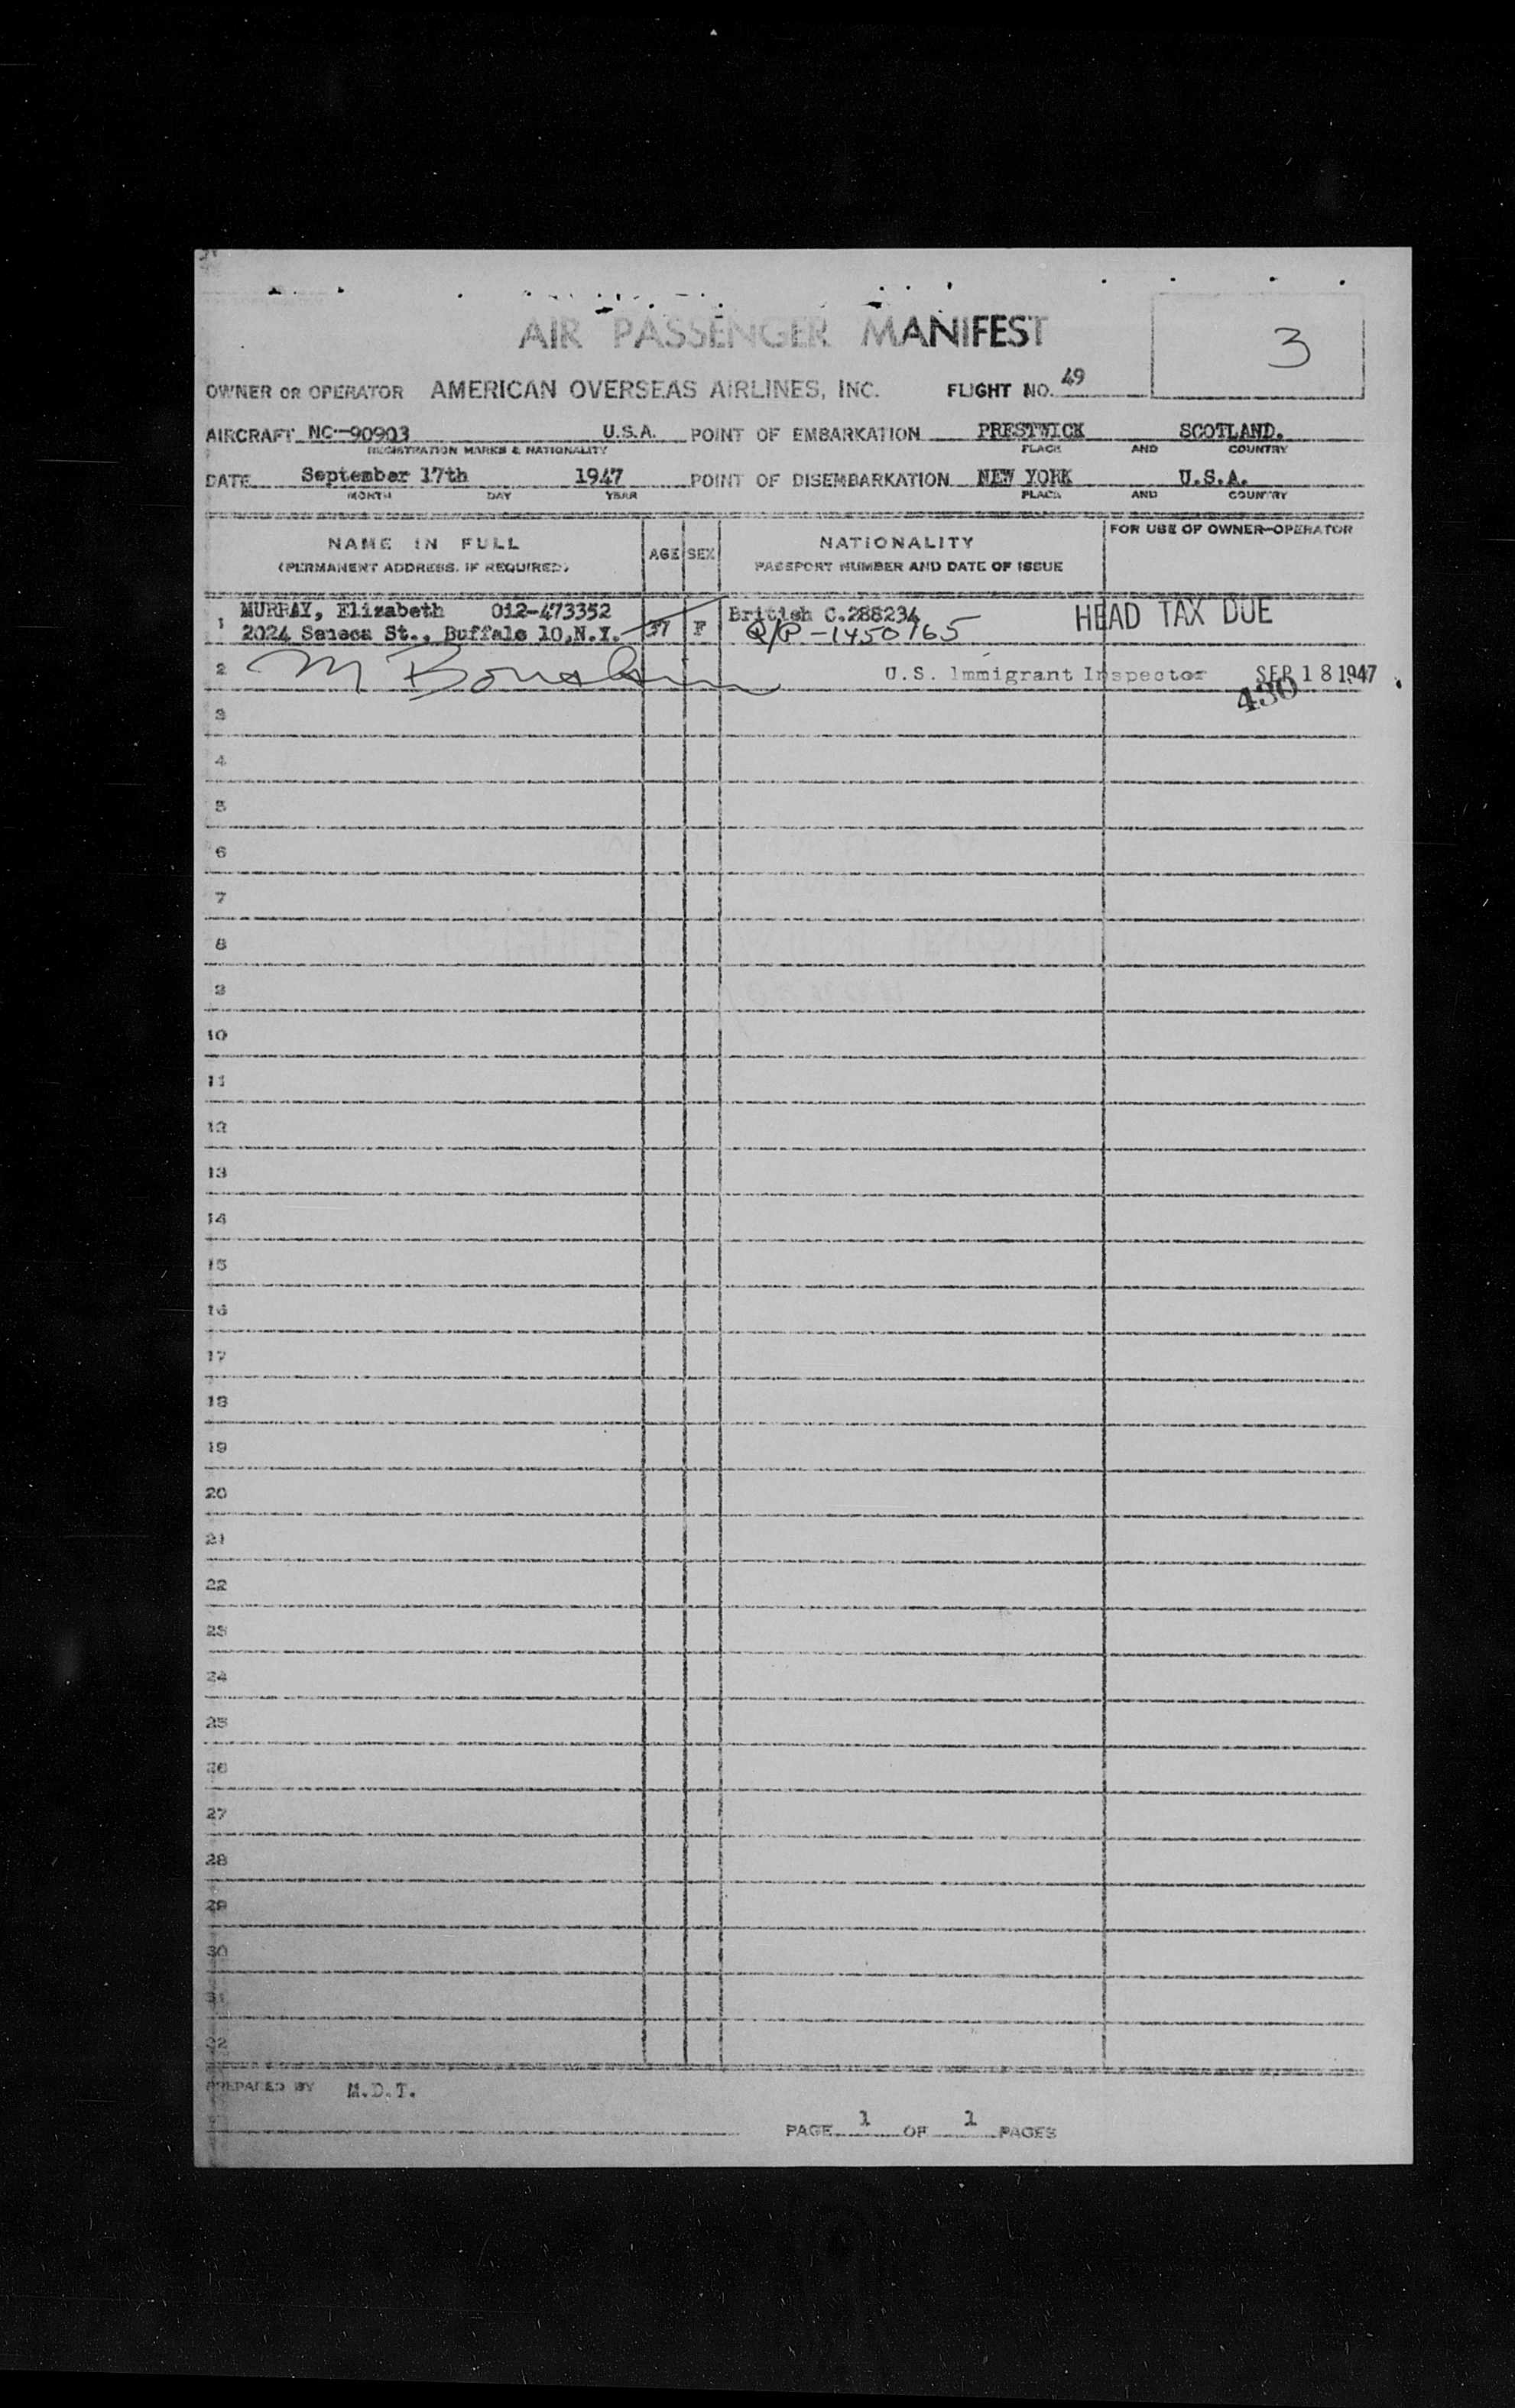 AIR PASSENGER MANIFEST
3
OWNER OR OPERATOR AMERICAN OVERSEAS AIRLINES, INC. FLIGHT NO. 49
AIRCRAFT NC-90903 U.S.A. POINT OF EMBARKATION PRESTWICK SCOTLAND.
REGISTRATION MARKS & NATIONALITY PLACE AND COUNTRY
DATE September 17th 1947 POINT OF DISEMBARKATION NEW YORK U.S.A.
MONTH DAY YEAR PLACE AND COUNTRY
NAME IN FULL
(PERMANENT ADDRESS, IF REQUIRED)
AGE SEX
NATIONALITY
PASSPORT NUMBER AND DATE OF ISSUE
FOR USE OF OWNER-OPERATOR
1 MURRAY, Elizabeth 012-473352 British C.288234 HEAD TAX DUE
2024 Seneca St., Buffalo 10,N.Y. 37 F -1450165
2 M U.S. Immigrant Inspector SEP 18 1947
430
3
4
5
6
7
8
9
10
11
12
13
14
15
16
17
18
19
20
21
22
23
24
25
26
27
28
29
30
31
32
PREPARED BY M.D.T.
PAGE 1 OF 1 PAGES